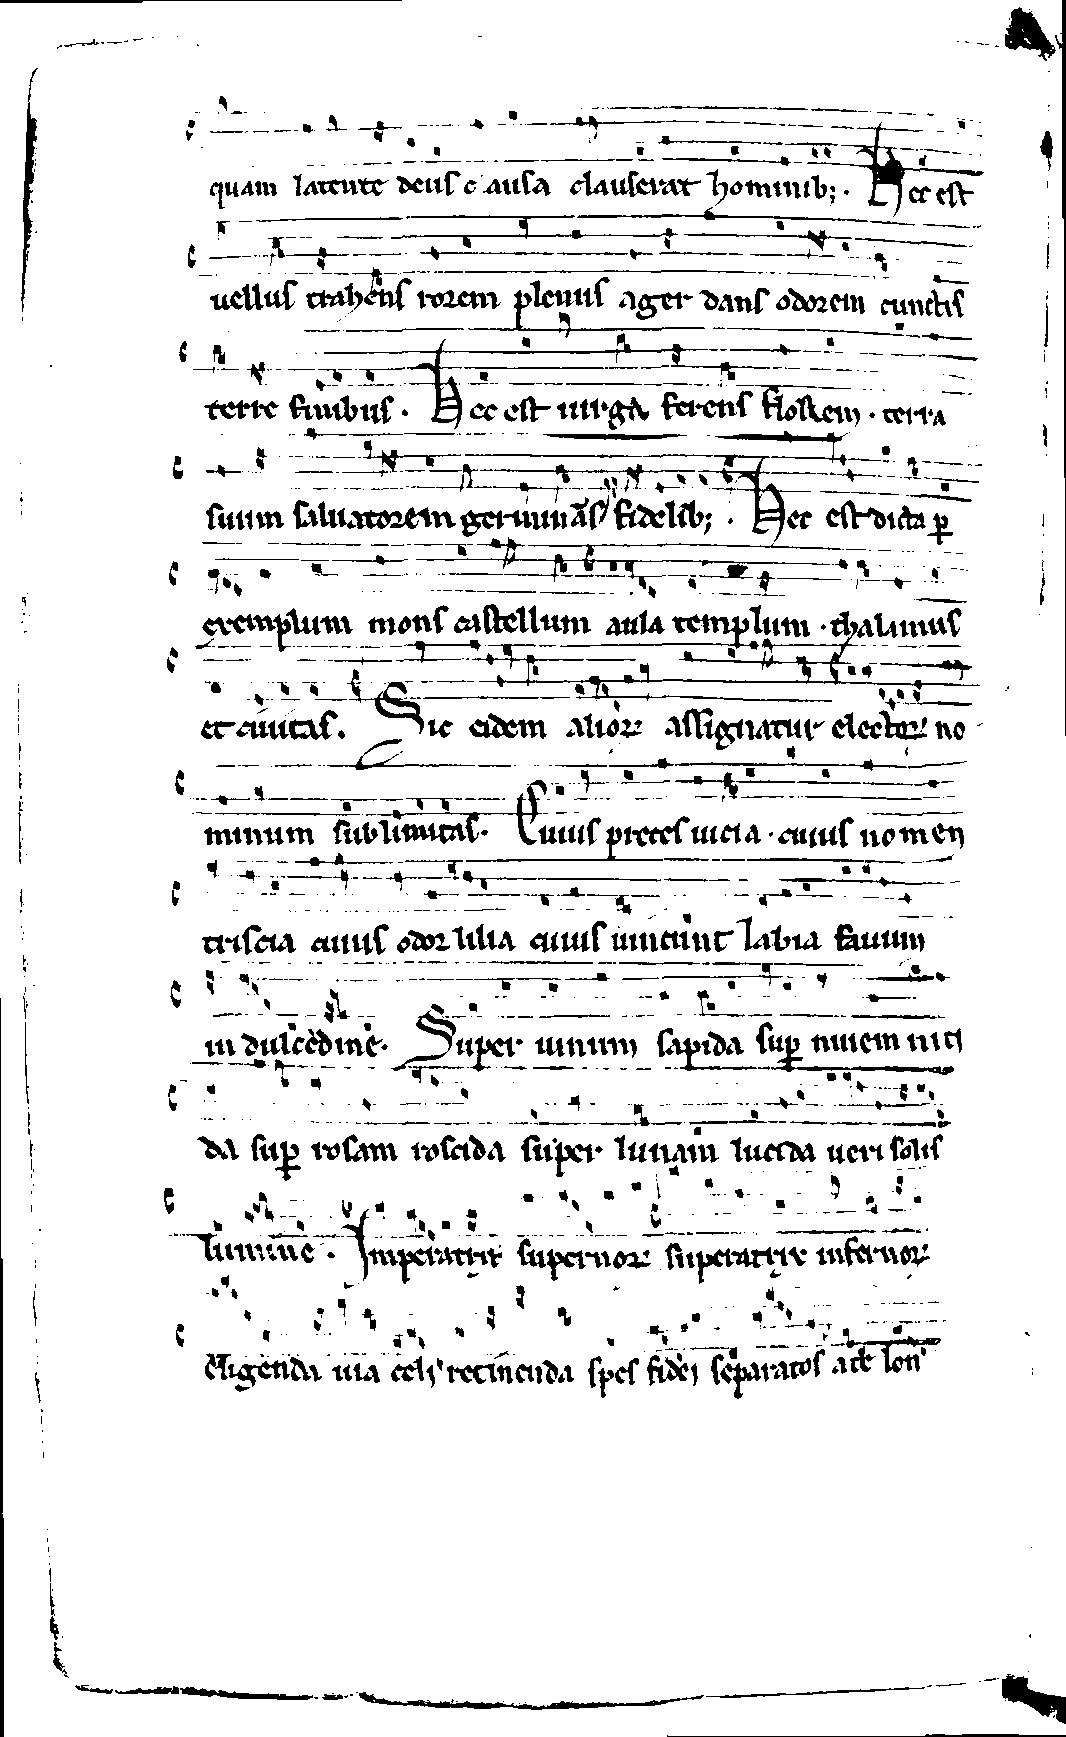 quam latente deus causa clauserat hominib; . Hec est
uellus trahens rorem plenus ager dans odorem cunctis
terre finibus . Hec est uirga ferens florem . terra
suum saluatorem germinãs fidelib; . Hec est dicta ꝑ
exemplum mons castellum aula templum . thalamus
et ciuitas . Sic eidem alioꝝ assignatur electoꝝ no
minum sublimitas . Cuius preces uicia . cuius nomen
tristia cuius odor lilia cuius uincunt labia fauum
in dulcedine . Super uinum sapida suꝑ niuem niti
da suꝑ rosam roscida super lunam lucida ueri solis
lumine . Imperatrix supernoꝝ superatrix infernoꝝ
eligenda uia celi retinenda spes fidei separatos a te lon